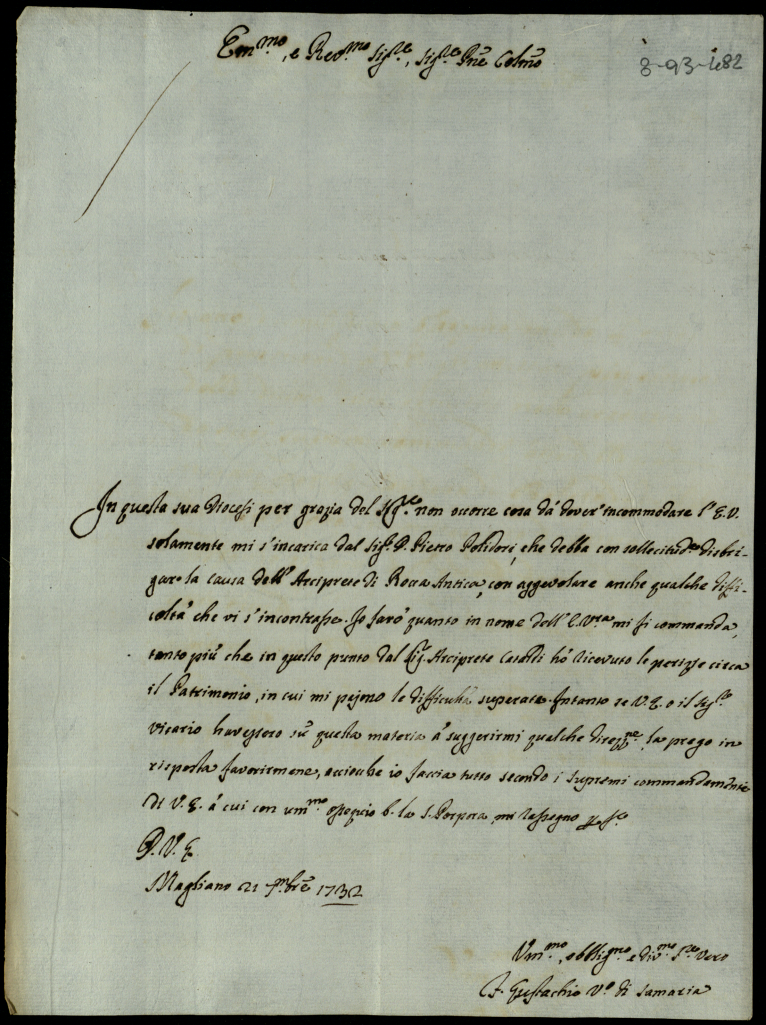 Em.mo, e Rev.mo Sig.re, Sig.re Pñe Colmo
8-93-182
In questa sua Diocesi per grazia del Sig.re non ocorre cosa dà dover' incommodare l'E.V.
solamente mi s'incarica dal Sig.r D. Pietro Polidori, che debba con sollecitud.e disbri-
gare la causa dell'Arciprete di Rocca Antica, con aggevolare anche qualche diffi-
coltà che vi s'incontrasse. Io farò quanto in nome dell'E. V.ra mi si commanda,
tanto più che in questo punto dal Sig.r Arciprete Cataldi hò ricevuto le perizie circa
il Patrimonio, in cui mi pajono le difficultà superate. Intanto se V. E. o il Sig.re
vicario havessero sù questa materia à suggerirmi qualche direzz.ne, la prego in
risposta favorirmene, acciochè io faccia tutto secondo i supremi commandamenti
di V. E. à cui con um.mo ossequio b. la S. Porpora mi rassegno
D. V. E.
Magliano 21 7mbrẽ 1732
Um.mo, obblig.mo e div.mo S.re vero
F. Eustachio V.o di Samaria